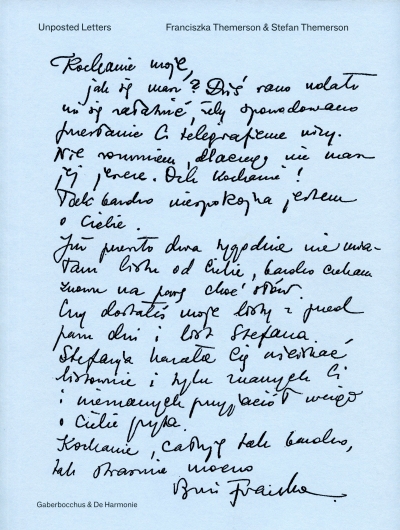 Unposted Letters
Franciszka Themerson & Stefan Themerson
Kochanie moje,
jak się masz? Dziś rano udało
mi się załatwić, żeby spowodowano
przesłanie Ci telegraficzne wizy.
Nie rozumiem, dlaczego nie masz
jej jeszcze. Och kochanie!
Tak bardzo niespokojna jestem
o Ciebie.
Już prawie dwa tygodnie nie mia-
łam listu od Ciebie, bardzo czekam
znowu na parę choć słów.
Czy dostałeś moje listy z przed
paru dni i list Stefana.
Stefania kazała Cię uściskać
listownie i tylu znanych Ci
i nieznanych przyjaciół wciąż
o Ciebie pyta.
Kochanie, całuję tak bardzo,
tak strasznie mocno
Franciszka
Gaberbocchus & De Harmonie